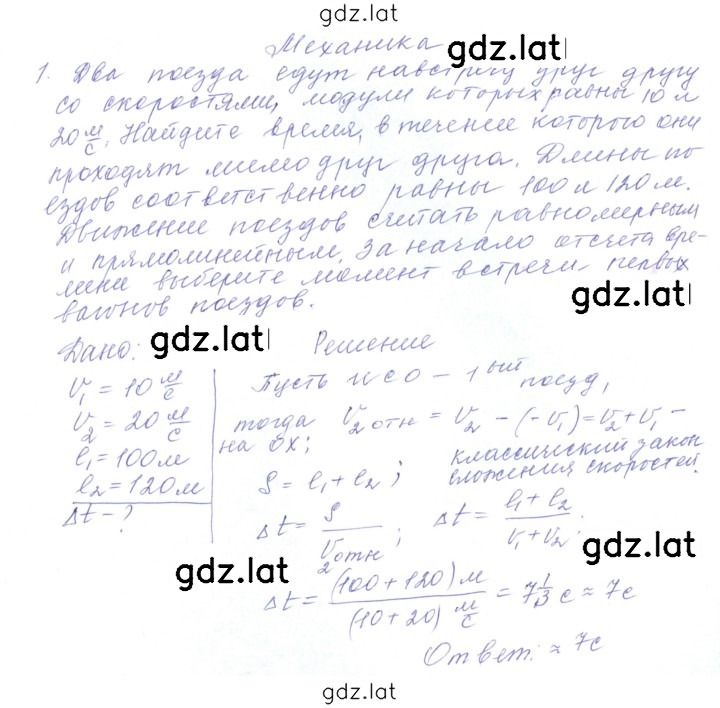 gdz.lat
Механика gdz.lat
1. Два поезда едут навстречу друг другу
со скоростями, модули которых равны 10 и
20 м/с. Найдите время, в течение которого они
проходят мимо друг друга. Длины по-
ездов соответственно равны 100 и 120 м.
Движение поездов считать равномерным
и прямолинейным. За начало отсчета вре-
мени выберите момент встречи первых
вагонов поездов. gdz.lat
Дано: gdz.lat Решение
V₁ = 10 м/с
V₂ = 20 м/с
l₁ = 100 м
l₂ = 120 м
Δt - ?
Пусть ИСО - 1ый поезд,
тогда V₂отн = V₂ - (-V₁) = V₂ + V₁ -
на OX; классический закон
сложения скоростей.
S = l₁ + l₂;
Δt = S / V₂отн; Δt = (l₁ + l₂) / (V₁ + V₂).
gdz.lat gdz.lat
Δt = (100 + 120) м / (10 + 20) м/с = 7 1/3 с ≈ 7 с
Ответ: ≈ 7с
gdz.lat